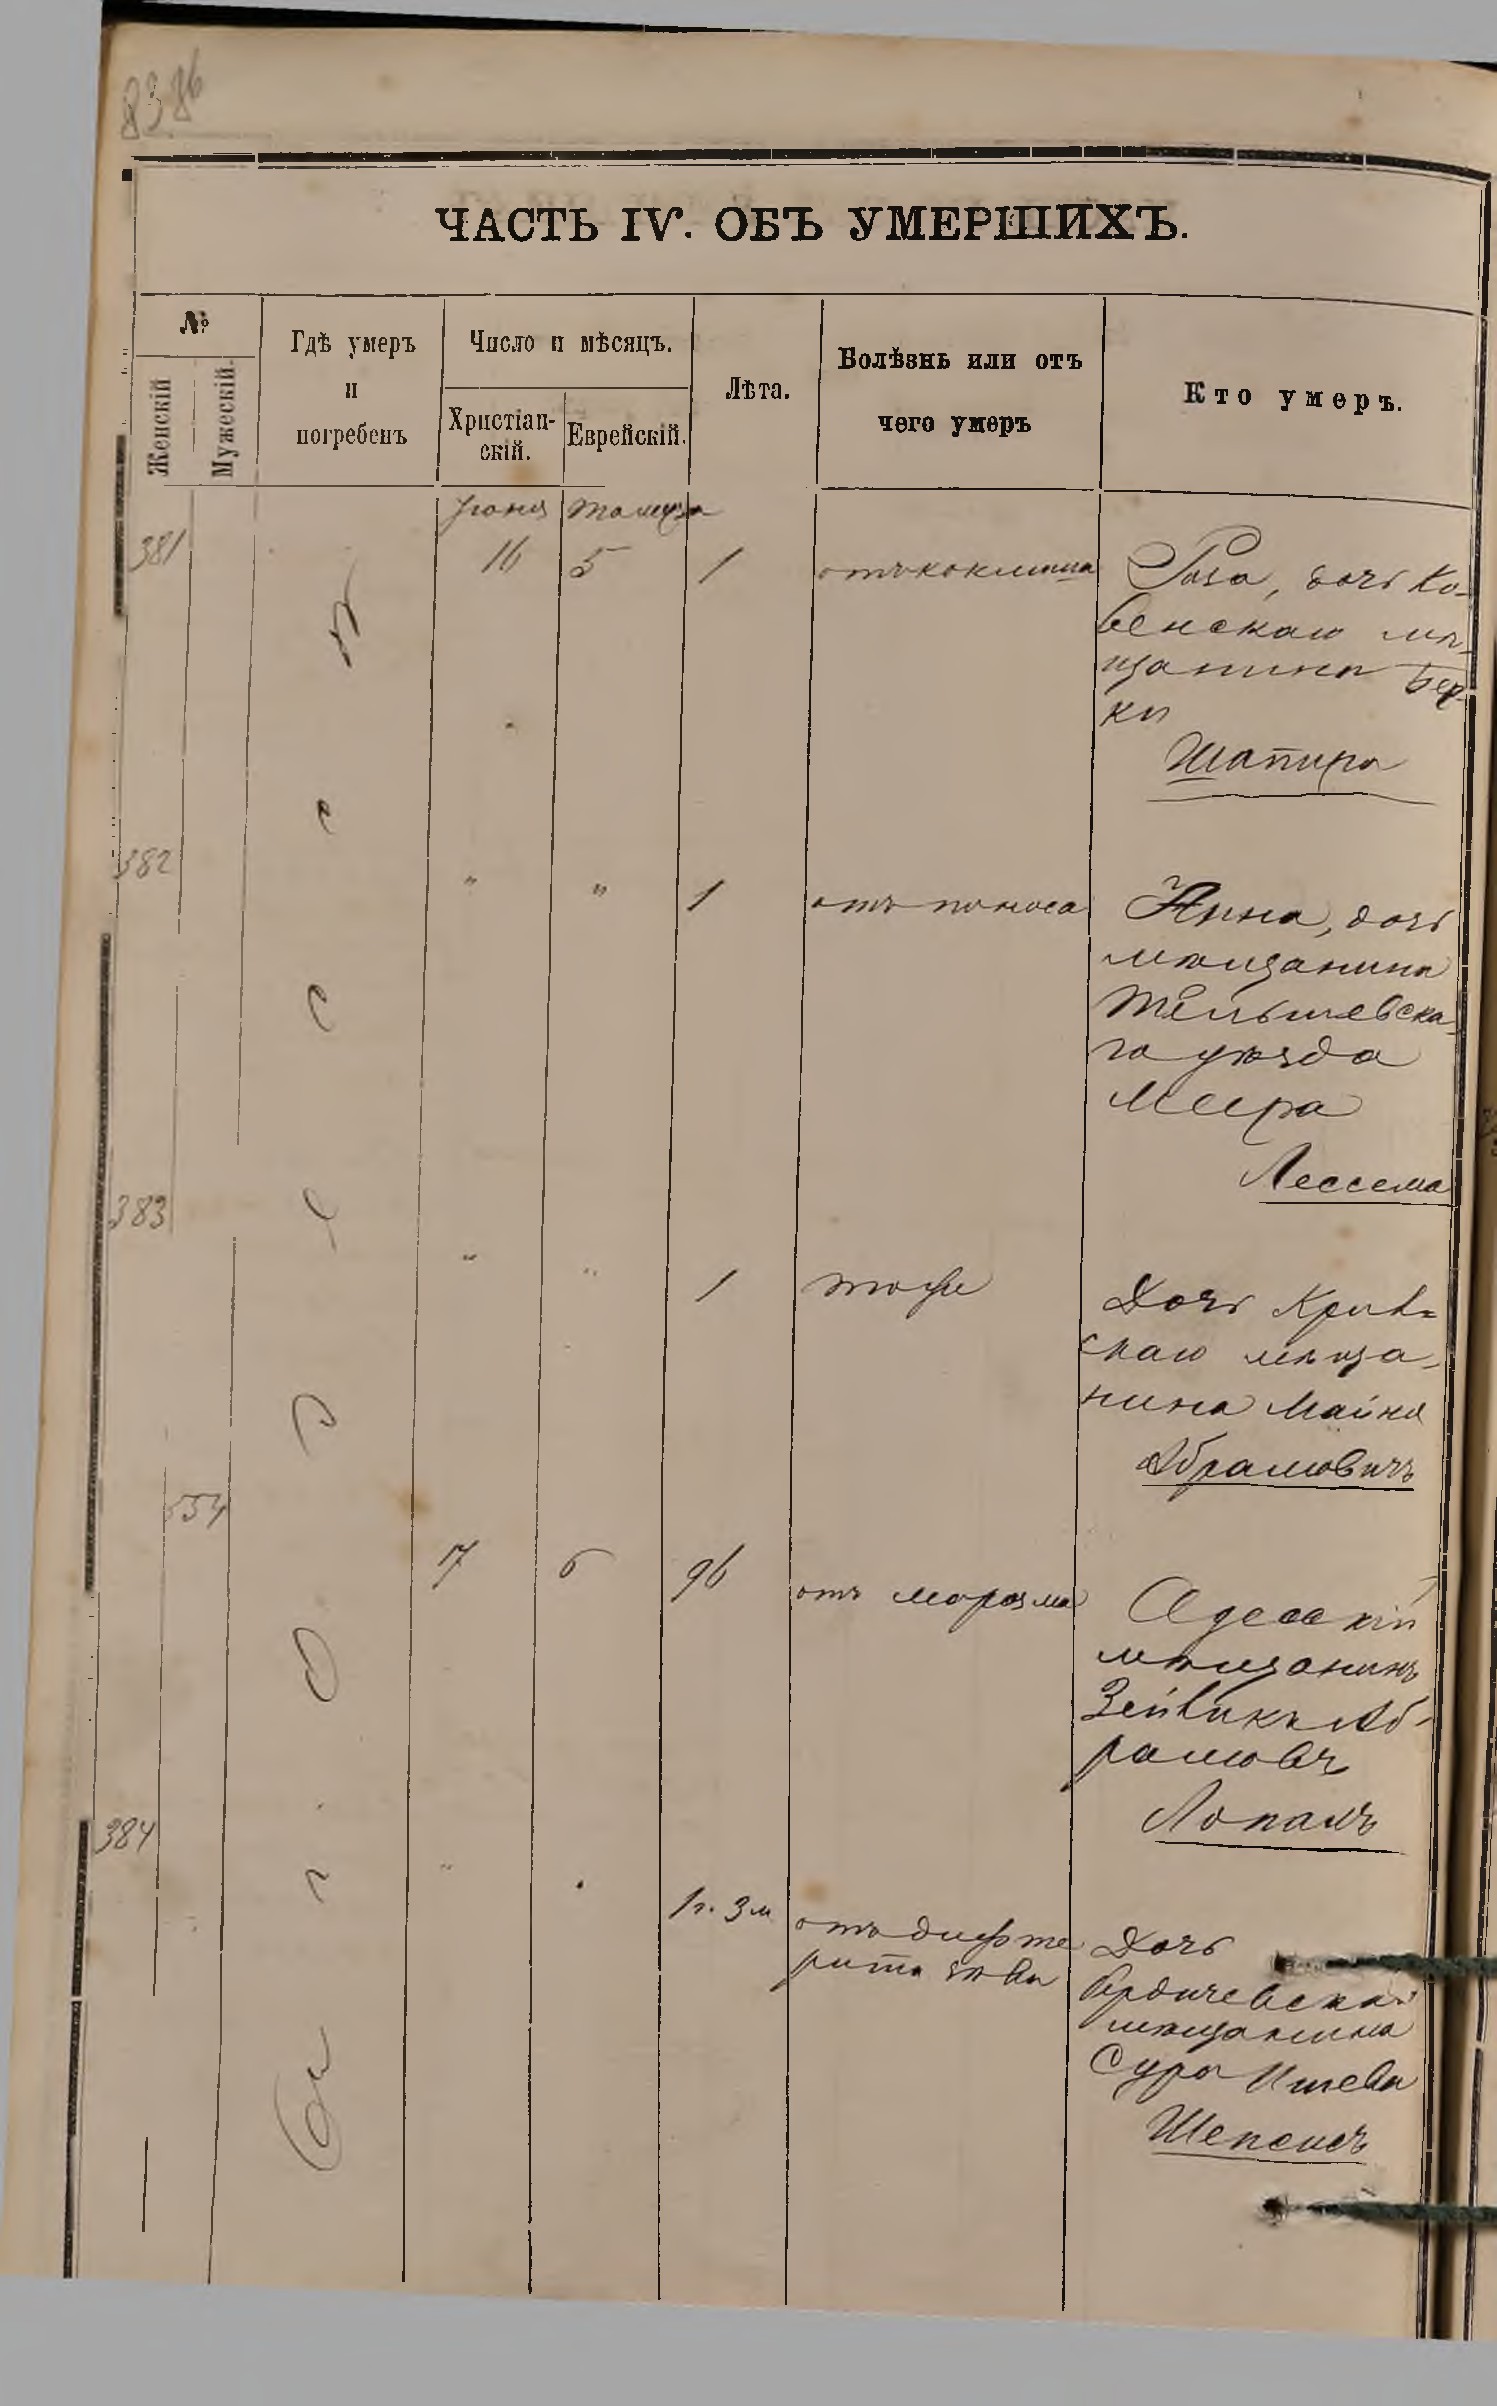 8386
ЧАСТЬ IV. ОБЪ УМЕРШИХЪ.
№
Женскій
Мужескій.
Гдѣ умеръ
и
погребенъ
Число и мѣсяцъ.
Христіан-
скій.
Еврейскій.
Лѣта.
Болѣзнь или отъ
чего умеръ
Кто умеръ.
Іюня Тамуза
381 16 5 1 отъ коклюша Роза, дочь Ко-
венскаго мѣ-
щанина Бер-
ки
Шапиро
382 " " 1 отъ поноса Анна, дочь
мѣщанина
Тельшевска-
го уѣзда
Меера
Лессема
383 " " 1 тоже Дочь
скаго мѣща-
нина
Абрамовичъ
554 17 6 96 отъ маразма Одесскій
мѣщанинъ
Зейликъ Аб-
рамовъ
384 " " 1 г. 3 м отъ дифте
рита зѣва Дочь
Бердичевска
мѣщанина
Сура
Шепсисъ
въ г. Одессѣ